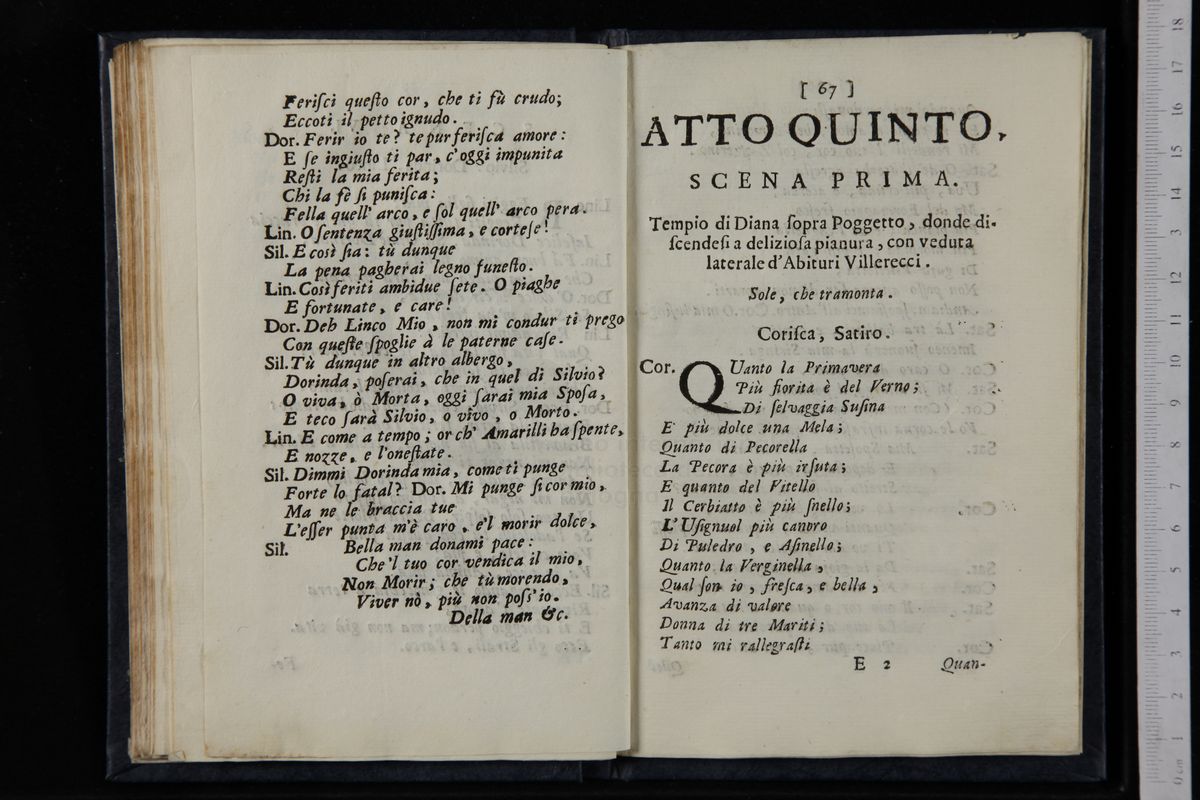 Feriſci queſto cor, che ti fù crudo;
Eccoti il petto ignudo.
Dor. Ferir io te? te pur feriſca amore:
E ſe ingiuſto ti par, c'oggi impunita
Reſti la mia ferita;
Chi la fè ſi puniſca:
Fella quell' arco, e ſol quell' arco pera.
Lin. O ſentenza giuſtiſſima, e corteſe!
Sil. E così ſia: tù dunque
La pena pagherai legno funeſto.
Lin. Così feriti ambidue ſete. O piaghe
E fortunate, e care!
Dor. Deh Linco Mio, non mi condur ti prego
Con queſte ſpoglie à le paterne caſe.
Sil. Tù dunque in altro albergo,
Dorinda, poſerai, che in quel di Silvio?
O viva, ò Morta, oggi ſarai mia Spoſa,
E teco ſarà Silvio, o vivo, o Morto.
Lin. E come a tempo; or ch' Amarilli ha ſpente,
E nozze, e l'oneſtate.
Sil. Dimmi Dorinda mia, come ti punge
Forte lo fatal? Dor. Mi punge ſi cor mio,
Ma ne le braccia tue
L'eſſer punta m'è caro, e'l morir dolce,
Sil. Bella man donami pace:
Che'l tuo cor vendica il mio,
Non Morir; che tù morendo,
Viver nò, più non poſſ'io.
Della man &c.
[ 67 ]
ATTO QUINTO,
SCENA PRIMA.
Tempio di Diana ſopra Poggetto, donde di-
ſcendeſi a delizioſa pianura, con veduta
laterale d'Abituri Villerecci.
Sole, che tramonta.
Coriſca, Satiro.
Cor. QUanto la Primavera
Più fiorita è del Verno;
Di ſelvaggia Suſina
E più dolce una Mela;
Quanto di Pecorella
La Pecora è più irſuta;
E quanto del Vitello
Il Cerbiatto è più ſnello;
L'Uſignuol più canoro
Di Puledro, e Aſinello;
Quanto la Verginella,
Qual ſon io, freſca, e bella,
Avanza di valore
Donna di tre Mariti;
Tanto mi rallegraſti
E 2 Quan-